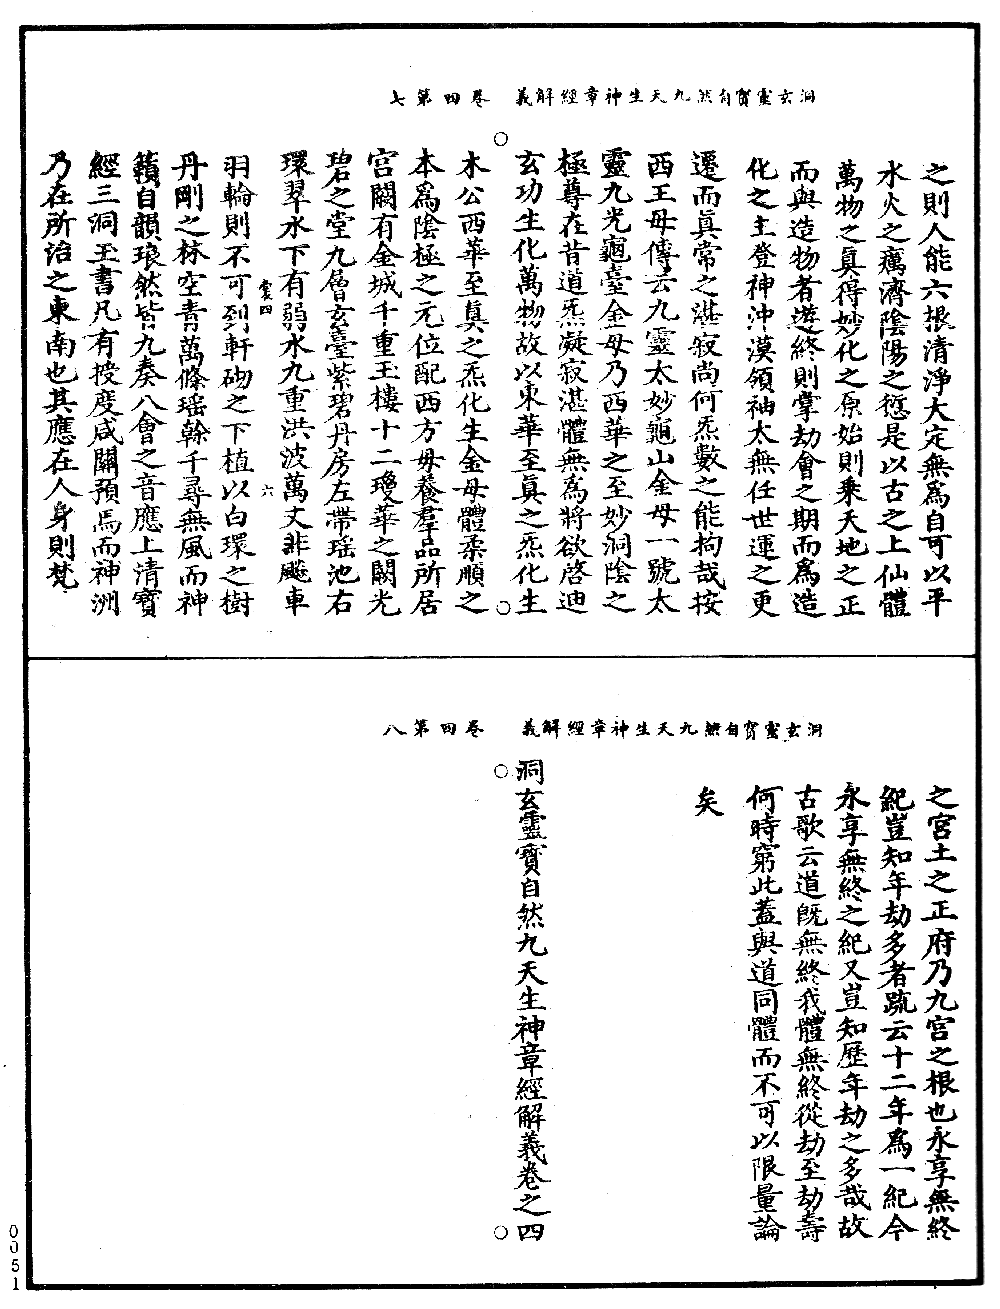 洞玄靈寶自然九天生神章經解義　卷四第七
之則人能六根清淨大定無爲自可以平
水火之癘濟陰陽之愆是以古之上仙體
萬物之眞得妙化之原始則乘天地之正
而與造物者遊終則掌劫會之期而爲造
化之主登神沖漠領袖太無任世運之更
遷而眞常之湛寂尚何炁數之能拘哉按
西王母傳云九靈太妙龜山金母一號太
靈九光龜臺金母乃西華之至妙洞陰之
極尊在昔道炁凝寂湛體無爲將欲啓迪
玄功生化萬物故以東華至眞之炁化生
木公西華至眞之炁化生金母體柔順之
本爲陰極之元位配西方母養羣品所居
宮闕有金城千重玉樓十二瓊華之闕光
碧之堂九層玄臺紫碧丹房左帶瑤池右
環翠水下有弱水九重洪波萬丈非飈車
羽輪則不可到軒砌之下植以白環之樹
丹剛之林空青萬條瑤幹千尋無風而神
籟自韻琅然皆九奏八會之音應上清寶
經三洞玉書凡有授度咸關預焉而神洲
乃在所治之東南也其應在人身則梵
洞玄靈寶自然九天生神章經解義　卷四第八
之宮土之正府乃九宮之根也永享無終
紀豈知年劫多者疏云十二年爲一紀今
永享無終之紀又豈知歷年劫之多哉故
古歌云道旣無終我體無終從劫至劫壽
何時窮此蓋與道同體而不可以限量論
矣
洞玄靈寶自然九天生神章經解義卷之四
0051